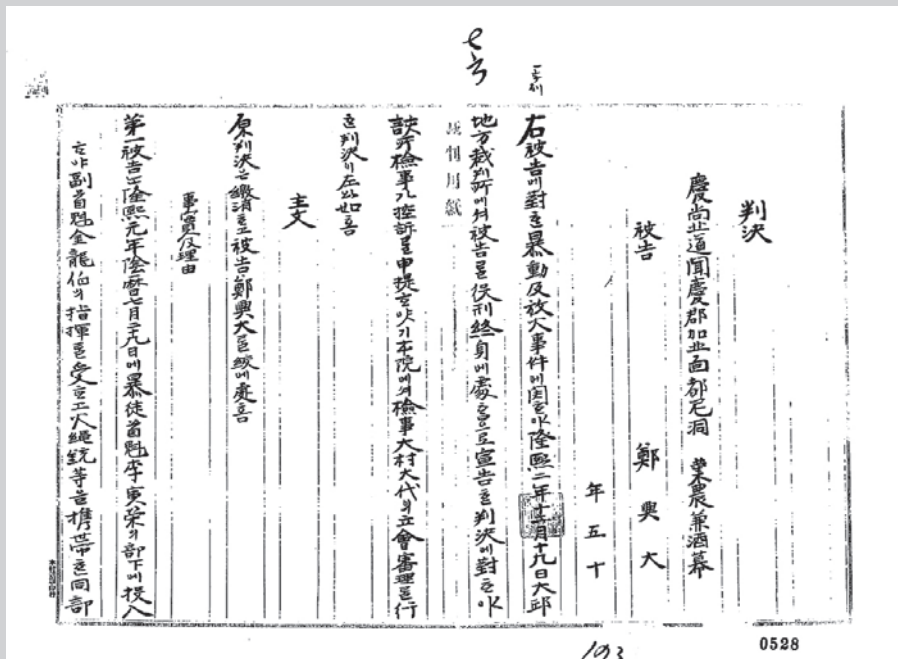 判決
慶尚北道聞慶郡加北面都尼洞 業農兼酒幕
被告 鄭興大
年五十
右被告에對ᄒᆞᆫ暴動及放火事件에関ᄒᆞ야隆熙二年十二月十九日大邱
地方裁判所에셔被告ᄅᆞᆯ役刑終身에處ᄒᆞᆷ으로宣告ᄒᆞᆫ判決에對ᄒᆞ야
該所檢事가控訴ᄅᆞᆯ申提ᄒᆞ야기本院에셔檢事大村大代의立會審理ᄅᆞᆯ行
ᄒᆞ고判決이左와如홈
主文
原判決은繳消ᄒᆞ고被告鄭興大ᄅᆞᆯ絞에處홈
事實及理由
第一被告ᄂᆞᆫ隆熙元年陰曆七月二十九日에暴徒首魁李寅榮의部下에投入
ᄒᆞ야副首魁金龍伯의指揮ᄅᆞᆯ受ᄒᆞ고火繩銃等을携帶ᄒᆞᆫ同部
0528
193